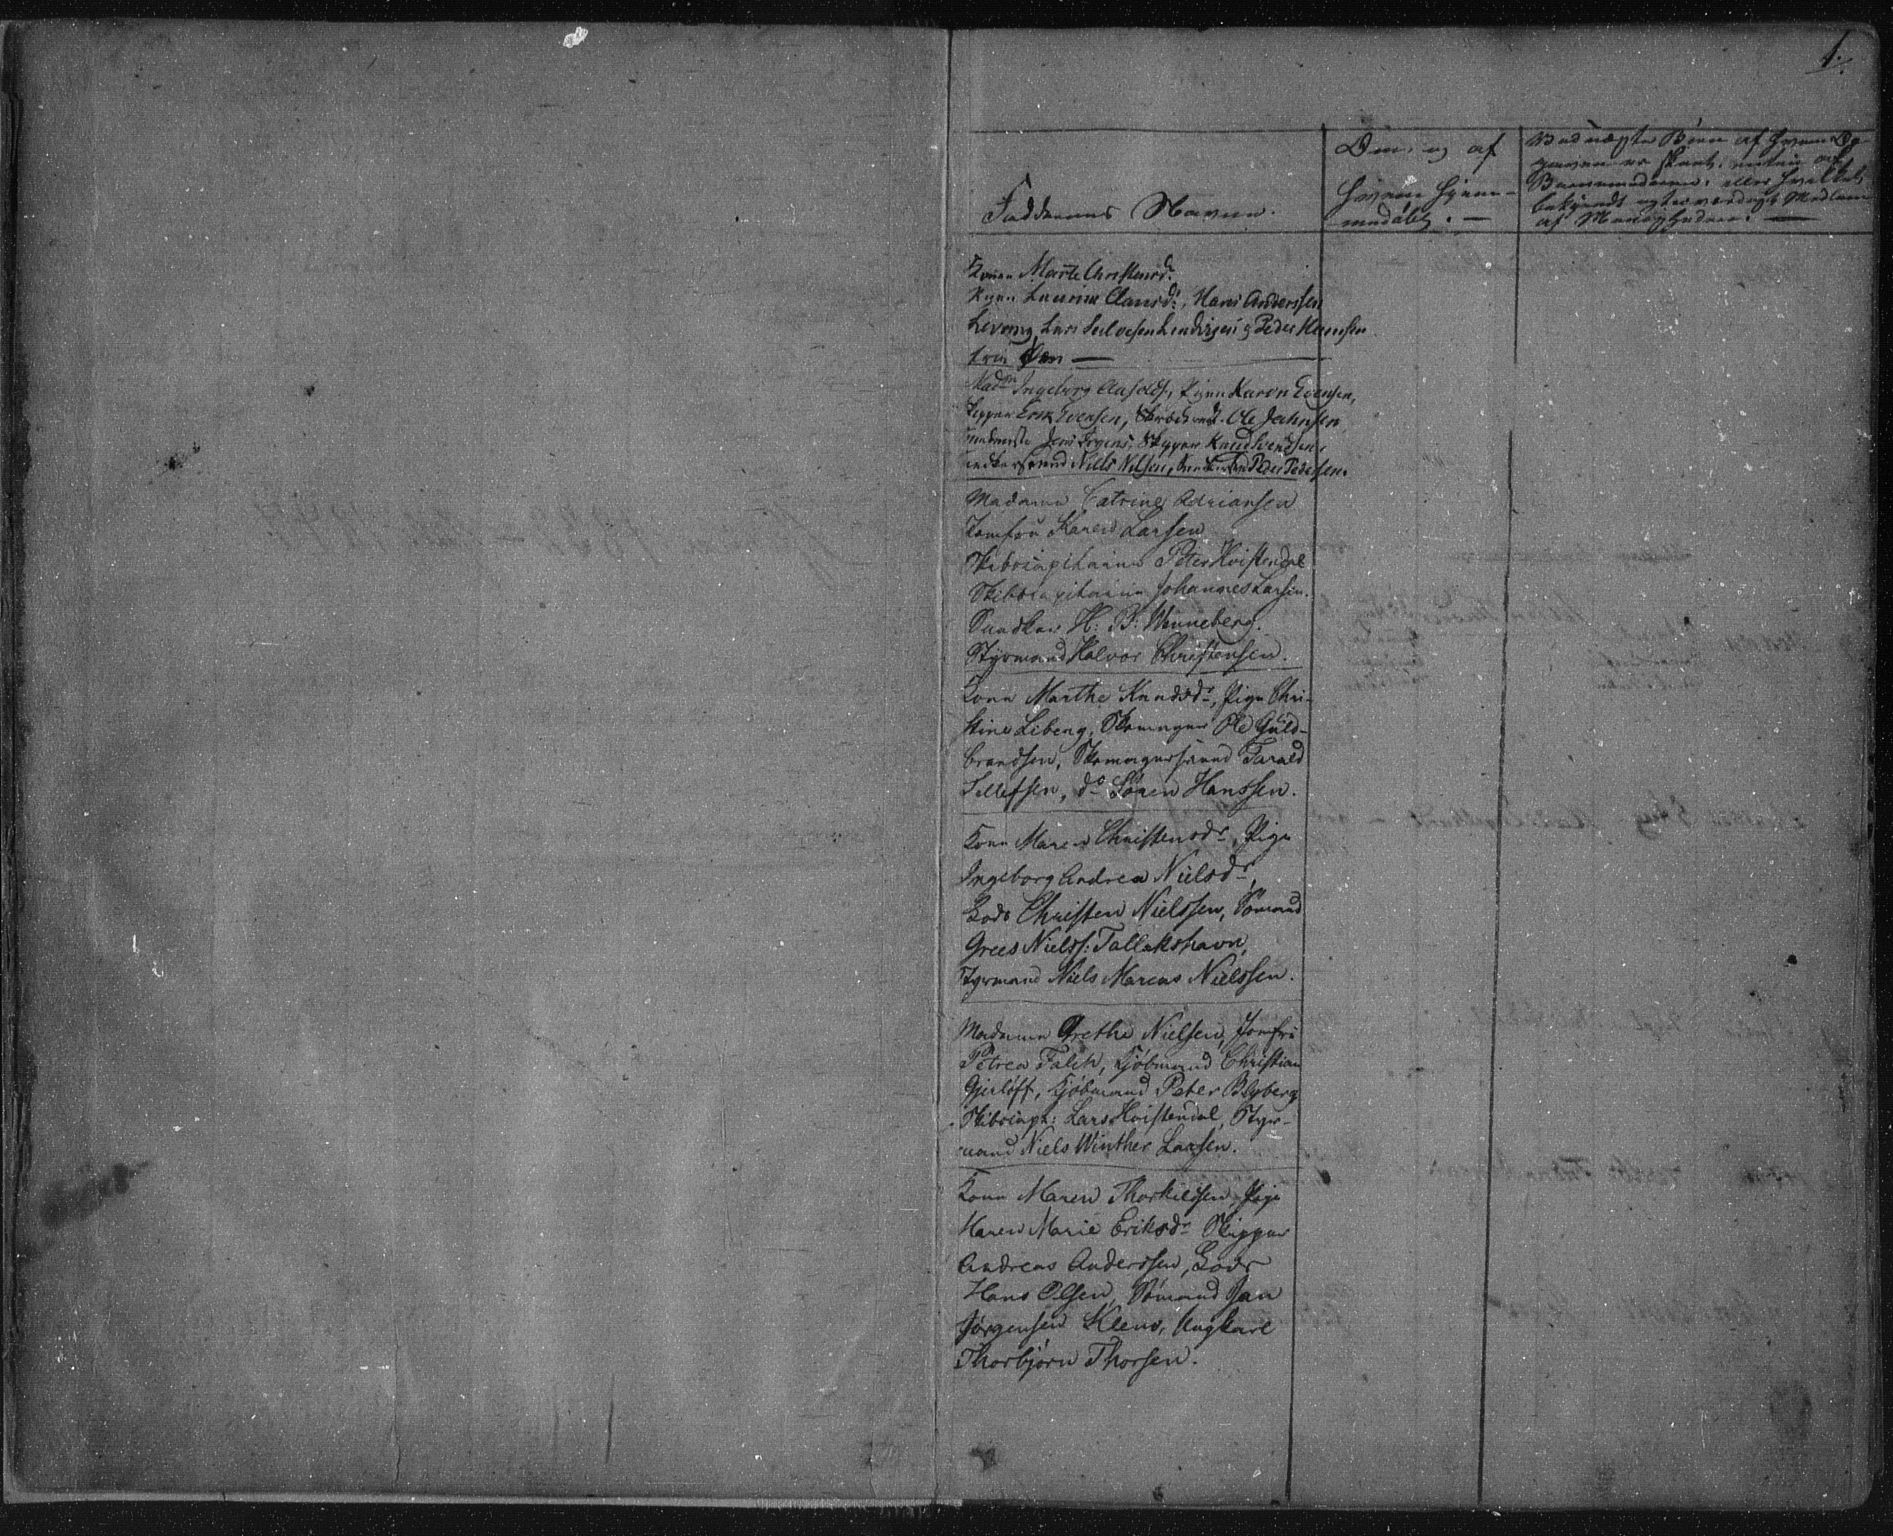 1.
Faddernes Navne.
Om, og af
hvem hjem-
medöbt. —
Ved uægte Børn af hvem Op-
gaven er skeet, enten af
Barnemoderen, eller hvilket
bekjendt og troværdigt Medlem
af Menigheden. —
Konen Marte Christensd.
Pigen Laurine Clausd:, Hans Anderssen
Peder Hansen
Mad:m Ingeborg Pigen Karen Evensen,
Skipper Erik Evensen, Ole Jahnsen
Jens Skipper Knud Svendsen,
Niels Nilsen, Peder Pedersen.
Madame Catrine Adriansen
Jomfru Karen Larsen
Skibscapitaine Peter Hvistendal
Skibscapitaine Johannes Larsen.
H: B: Winneberg.
Styrmand Halvor Christensen.
Kone Marthe Knudsdr, Pige Chri-
stine Liberg, Skomager Ole Guld-
brandsen, Skomagersvend Tarald
Tellefsen, do Søren Hanssen.
Kone Maren Christensdr, Pige
Ingeborg Andrea Nielsdr,
Lods Christen Nielssen, Sömand
Grees Nielss: Tallakshavn,
Styrmand Niels Marcus Nielssen.
Madame Grethe Nielsen, Jomfru
Petrea Falck, Kjöbmand Christian
Gjerløff, Kjöbmand Peter Blyberg
Skibscapt: Lars Hvistendal, Styr-
mand Niels Winther Larsen.
Kone Maren Thorkildsen, Pige
Maren Marie Eriksdr Skipper
Andreas Anderssen, Lods
Hans Olsen, Sömand Jan
Jørgensen Klevs, Ungkarl
Thorbjørn Thorsen.